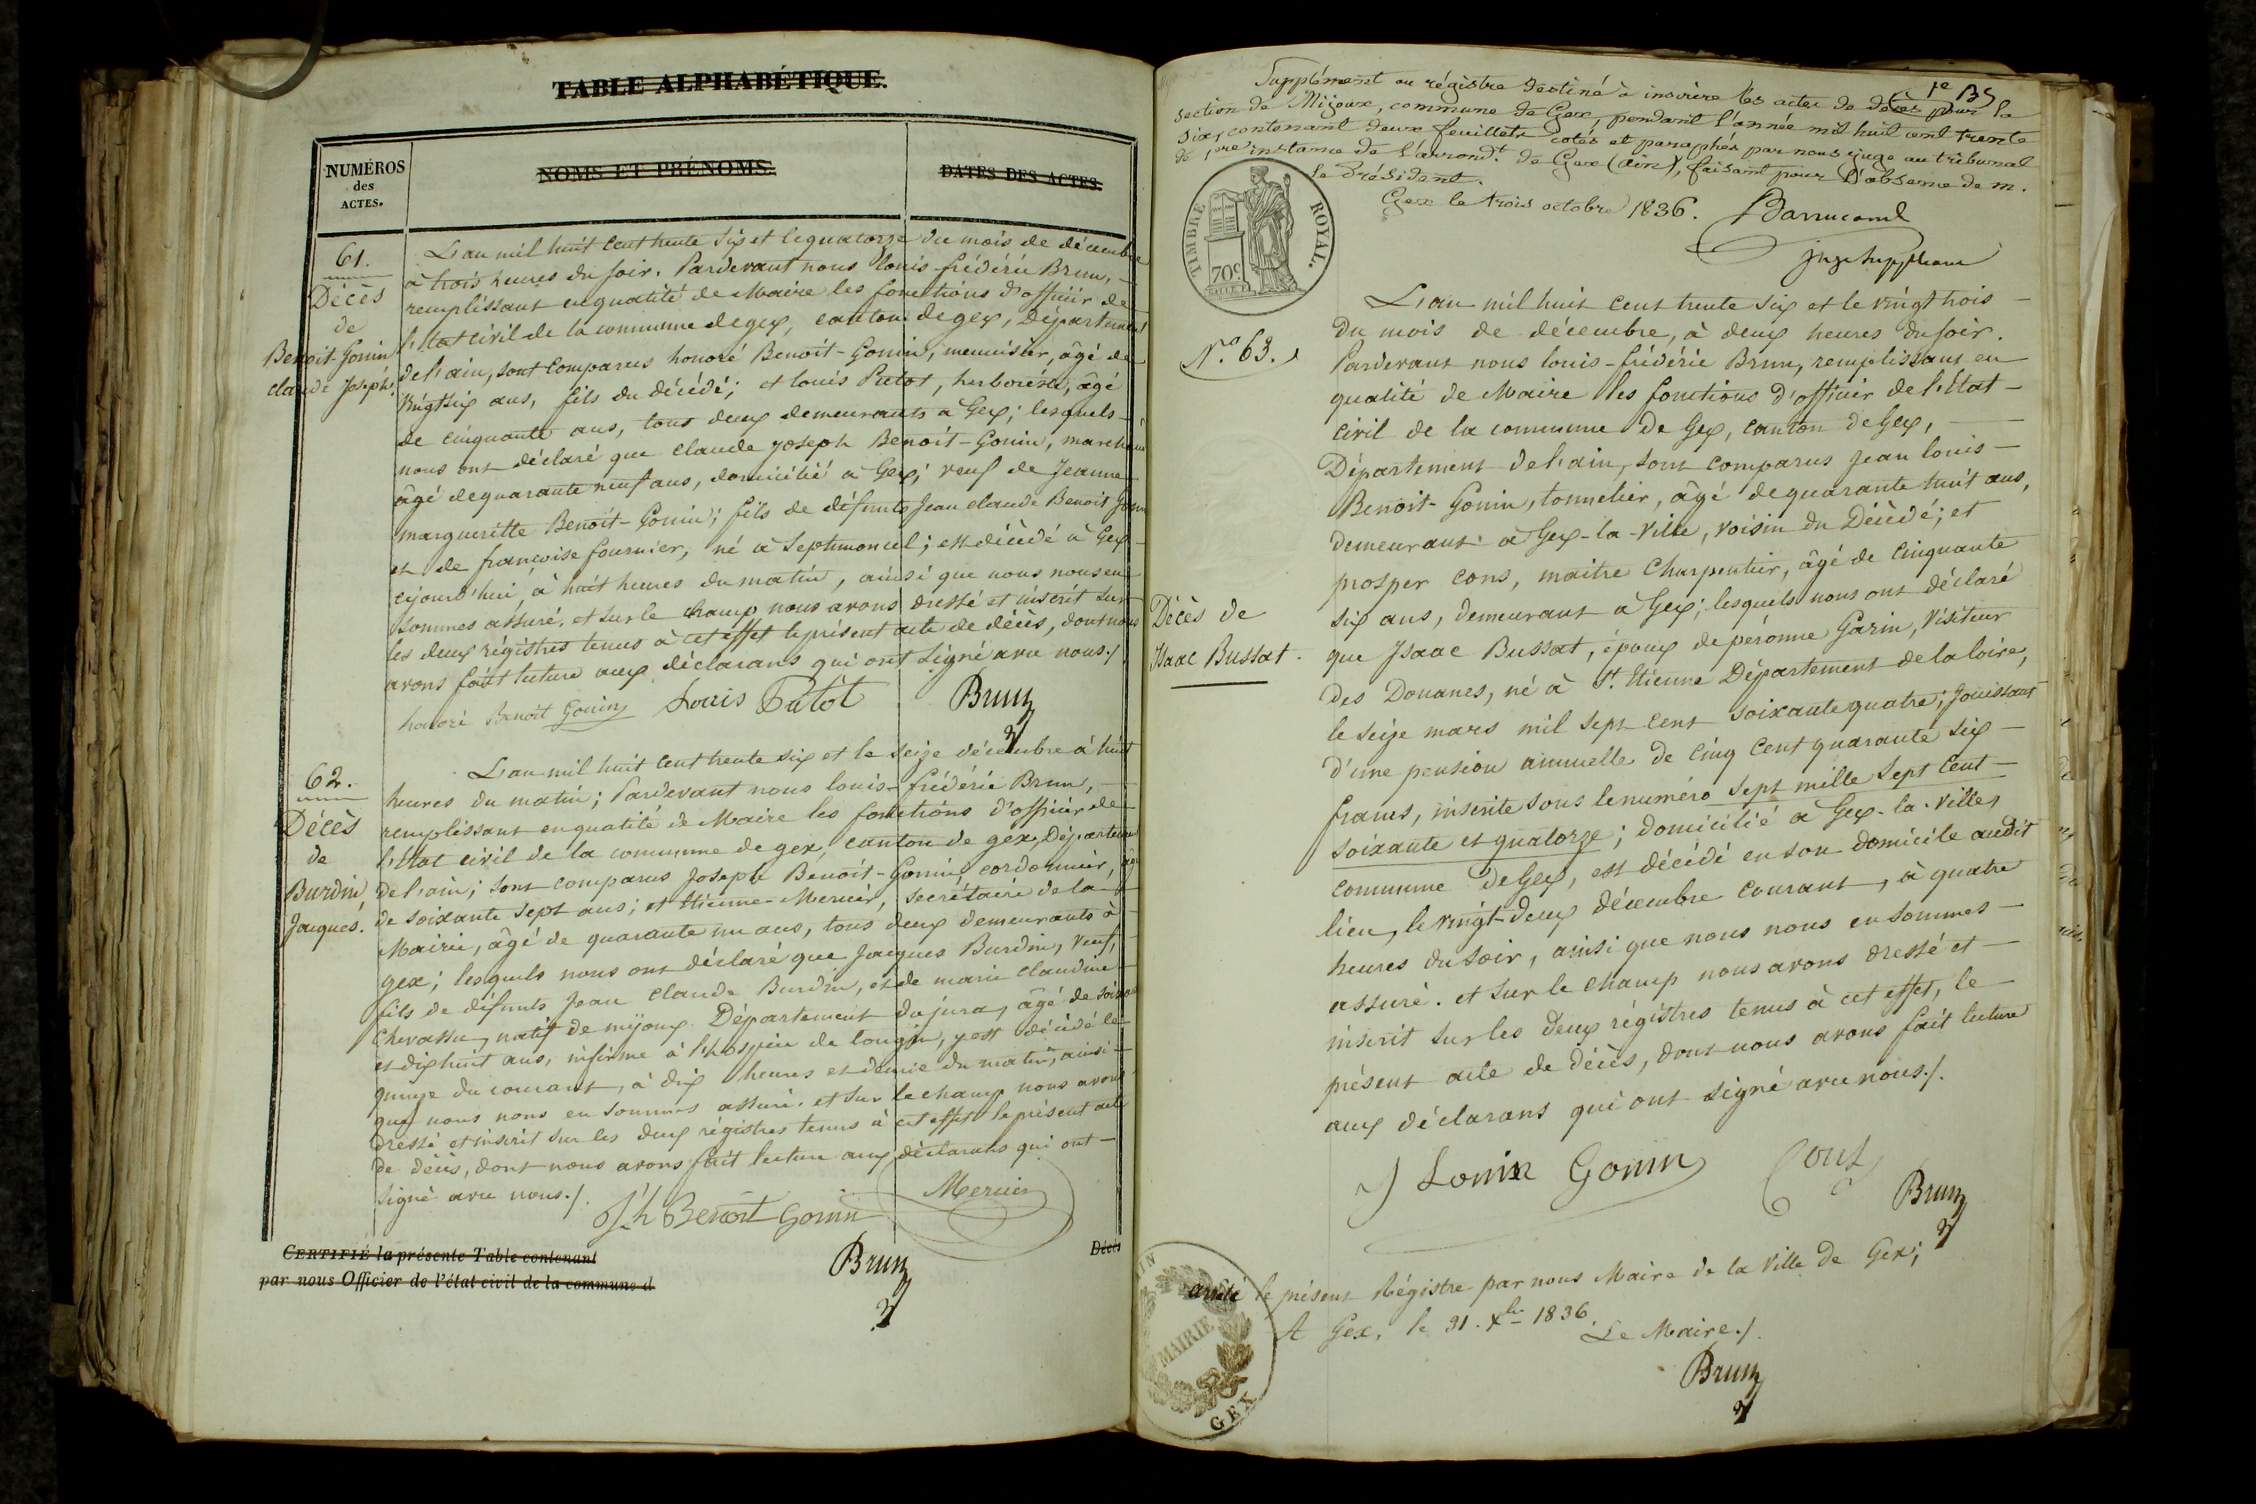 TABLE ALPHABÉTIQUE.
NUMÉROS
des
ACTES.
NOMS ET PRÉNOMS.
DATES DES ACTES.
61.
Décès
de
Benoit-Gonin
claude Joseph.
L'an mil huit cent trente six et le quatorze du mois de décembre
à trois heures du soir. Pardevant nous louis-frédéric Brun,
remplissant en qualité de Maire les fonctions d'officier de
l'Etat civil de la commune de gex, canton de gex, Département
de l'ain, sont comparus honoré Benoit-Gonin, menuisier, âgé de
vingt six ans, fils du décédé; et louis Patot, âgé
de cinquante ans, tous deux demeurants à Gex; lesquels
nous ont déclaré que claude joseph Benoit-Gonin, marchand
âgé de quarante neuf ans, domicilié à Gex; veuf de Jeanne
margueritte Benoit-Gonin; fils de défunts Jean claude Benoit Gonin
et de francoise fournier, né à Septmoncel; est décédé à Gex
cejourd'hui, à huit heures du matin, ainsi que nous nous en
sommes assuré. et sur le champ nous avons dressé et inscrit sur
les deux régistres tenus à cet effet le présent acte de décès, dont nous
avons fait lecture aux déclarans qui ont signé avec nous./.
honoré Benoit Gonin Louis Patot Brun
62.
Décès
de
Burdin,
Jaques.
L'an mil huit cent trente six et le seize décembre à huit
heures du matin; Pardevant nous louis-frédéric Brun,
remplissant en qualité de Maire les fonctions d'officier de
l'Etat civil de la commune de gex, canton de gex, Département
de l'ain; sont comparus Joseph Benoit-Gonin, cordonnier, âgé
de soixante sept ans; et Etienne Mercier, secrétaire de la
Mairie, âgé de quarante un ans, tous deux demeurants à
gex; lesquels nous ont déclaré que Jacques Burdin, veuf,
fils de défunts Jean Claude Burdin, et de marie claudine
Chevassu, natif de mijoux Département du jura, âgé de soixante
et dix huit ans, infirme à l'hospice de tougin, y est décédé le
quinze du courant, à dix heures et demie du matin, ainsi
que nous nous en sommes assuré. et sur le champ nous avons
dressé et inscrit sur les deux régistres tenus à cet effet le présent acte
de décès, dont nous avons fait lecture aux déclarants qui ont
signé avec nous./.
Jh Benoit Gonin Mercier
Brun
CERTIFIÉ la présente Table contenant Décès
par nous Officier de l'état civil de la commune d
1e
Supplément au régistre destiné à inscrire les actes de décès pour la
section de Mijoux, commune de Gex, pendant l'année mil huit cent trente
six, contenant deux feuillets cotés et paraphés par nous juge au tribunal
de 1ere instance de l'arrondt. de Gex (Ain), faisant pour l'absence de m.
le Président.
Gex le trois octobre 1836.
juge suppléant
TIMBRE ROYAL.
70c.
No. 63.
Décès de
Isaac Bussat.
L'an mil huit cent trente six et le vingt trois
du mois de décembre, à deux heures du soir.
Pardevant nous louis-frédéric Brun, remplissant en
qualité de Maire les fonctions d'officier de l'Etat
civil de la commune de Gex, canton de Gex,
Département de l'ain, sont comparus Jean louis
Benoit-Gonin, tonnelier, âgé de quarante huit ans,
demeurant à Gex-la-Ville, voisin du Décédé; et
prosper cons, maitre Charpentier, âgé de cinquante
six ans, demeurant à Gex; lesquels nous ont déclaré
que Isaac Bussat, époux de péronne Garin, visiteur
des Douanes, né à St. Etienne Département de la loire,
le seize mars mil sept cent soixante quatre; jouissant
d'une pension annuelle de cinq cent quarante six
francs, inscrite sous le numéro sept mille sept cent
soixante et quatorze; domicilié à Gex-la-Ville,
commune de Gex, est décédé en son domicile audit
lieu, le vingt-deux décembre courant, à quatre
heures du soir, ainsi que nous nous en sommes
assuré. et sur le champ nous avons dressé et
inscrit sur les deux régistres tenus à cet effet, le
présent acte de décès, dont nous avons fait lecture
aux déclarans qui ont signé avec nous./.
J Louis Gonin Cons
Brun
arrêté le présent Régistre par nous Maire de la Ville de Gex;
A Gex, le 31. Xbre 1836.
Le Maire./.
Brun
MAIRIE
GEX